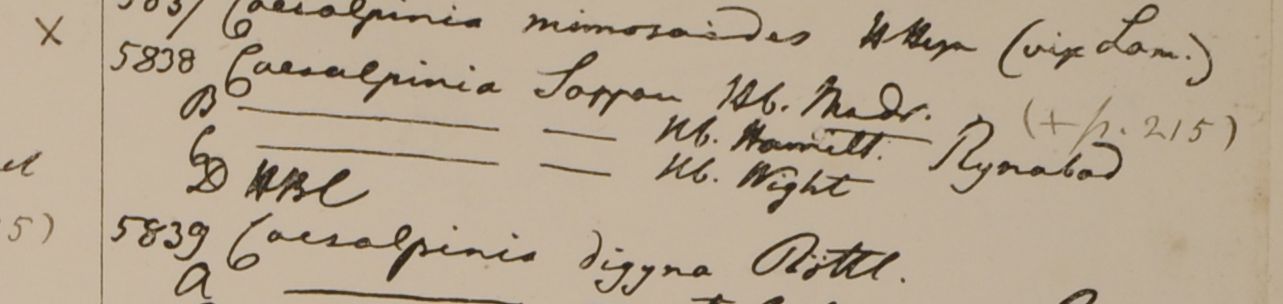 5837 Caesalpinia mimosoides HHeyn (vix Lam.)
X
5838 Caesalpinia Sappan Hb. Madr.
B ——— — Hb. Hamilt. (+ p. 215)
C ——— — Hb. Wight
D HBC
5) 5839 Caesalpinia digyna Rottl.
A ———